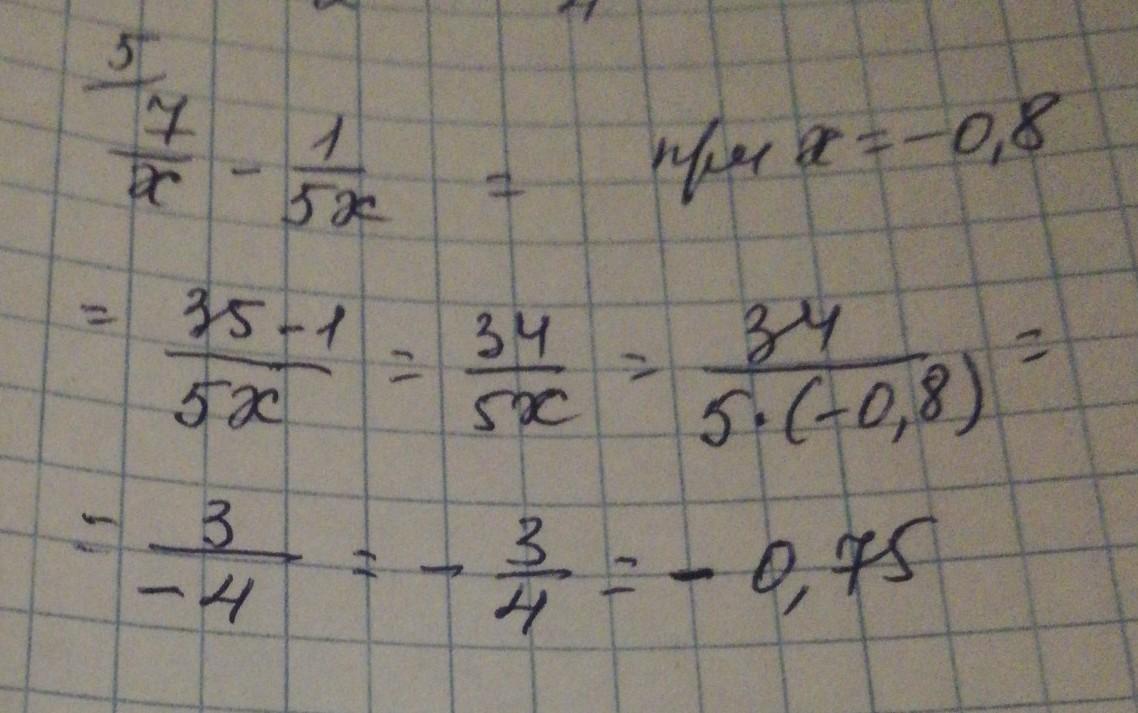 5/
7/x - 1/5x = при x = -0,8
= 35-1/5x = 34/5x = 34/5·(-0,8) =
= 3/-4 = - 3/4 = - 0,75